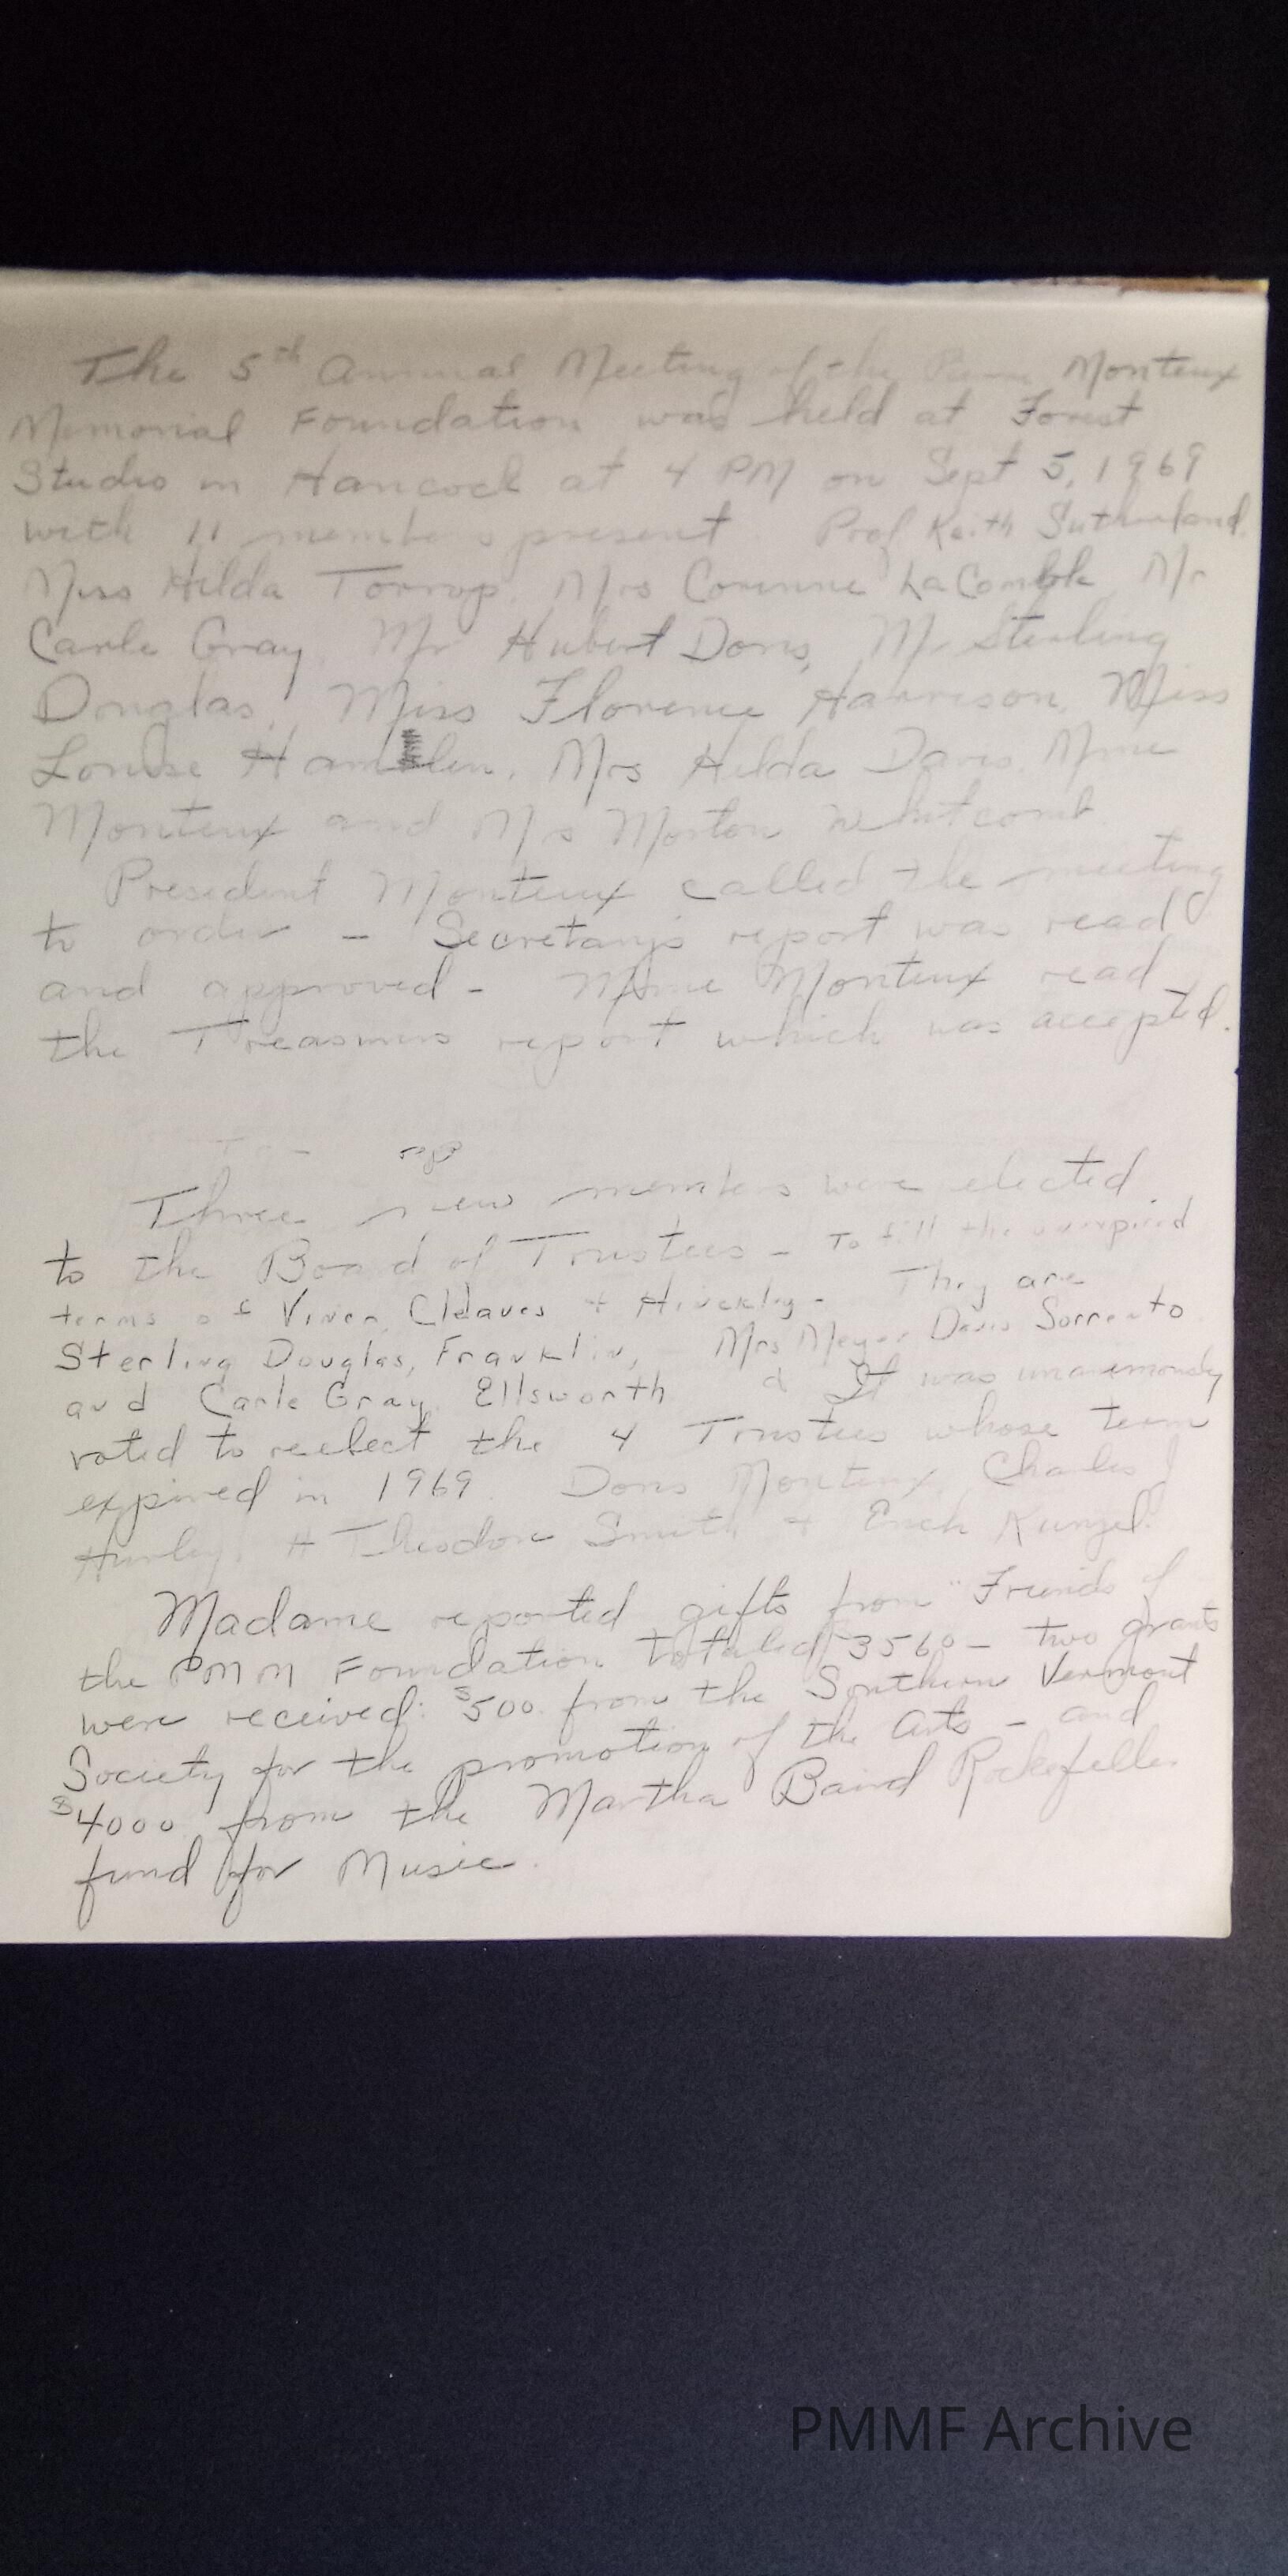 The 5th Annual Meeting of the Pierre Monteux
Memorial Foundation was held at Forest
Studio in Hancock at 4 PM on Sept 5, 1969
with 11 members present. Prof Keith Sutherland,
Miss Hilda Torrop, Mrs Corinne LaComble, Mr
Carle Gray, Mr Hubert Doris, Mr Sterling
Douglas, Miss Florence Harrison, Miss
Louise Hamlen, Mrs Hilda Davis, Mme
Monteux and Mrs Morton Whitcomb
President Monteux called the meeting
to order - Secretary's report was read
and approved - Mme Monteux read
the Treasurers report which was accepted.
Three new members were elected
to the Board of Trustees - To fill the unexpired
terms of Cleaves + Hinckley - They are
Sterling Douglas, Franklin, Mrs Meyer Davis Sorrento
and Carle Gray, Ellsworth It was unanimously
voted to reelect the 4 Trustees whose term
expired in 1969. Doris Monteux, Charles J
Hurley, H Theodore Smith + Erich Kunzel.
Madame reported gifts from "Friends of
the PMM Foundation totaled 3560 - two grants
were received: $500. from the Southern Vermont
Society for the promotion of the Arts - and
$4000 from the Martha Baird Rockefeller
fund for Music.
PMMF Archive